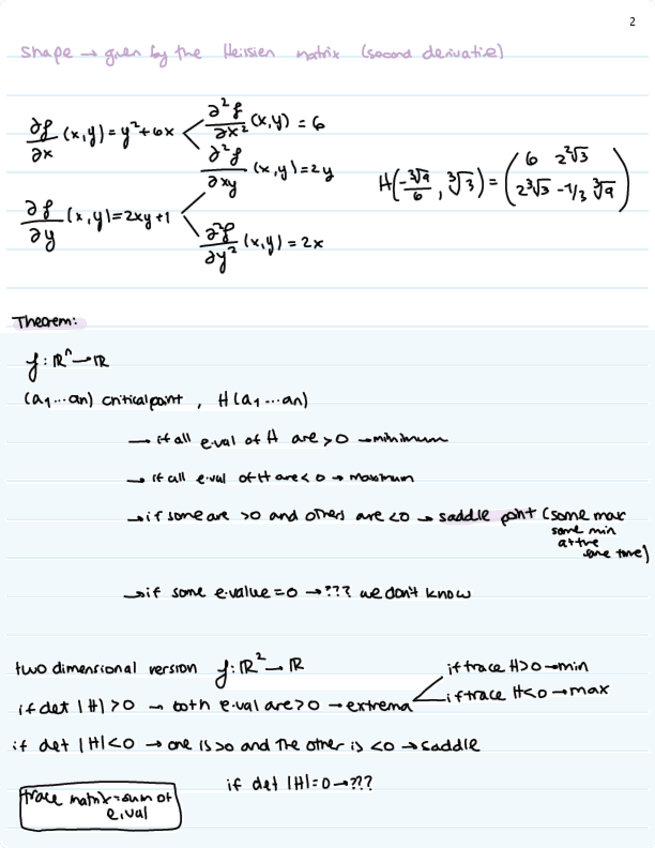 2
Shape → given by the Hessien matrix (second derivative)
∂f/∂x (x,y) = y²+6x < ∂²f/∂x² (x,y) = 6
∂²f/∂xy (x,y) = 2y
H(-∛9/6, ∛3) = (6 2∛3
2∛3 -1/3 ∛9)
∂f/∂y (x,y) = 2xy+1 < ∂²f/∂y² (x,y) = 2x
Theorem:
f: ℝⁿ → ℝ
(a1...an) critical point , H(a1...an)
→ if all e.val of H are >0 → minimum
→ if all e.val of H are <0 → maximum
→ if some are >0 and others are <0 → saddle point (some max
some min
at the
same time)
→ if some e.value=0 → ??? we don't know
two dimensional version f: ℝ² → ℝ
if trace H>0 → min
if det |H|>0 → both e.val are >0 → extrema < if trace H<0 → max
if det |H|<0 → one is >0 and the other is <0 → saddle
if det |H|=0 → ???
trace matrix = sum of
e.val